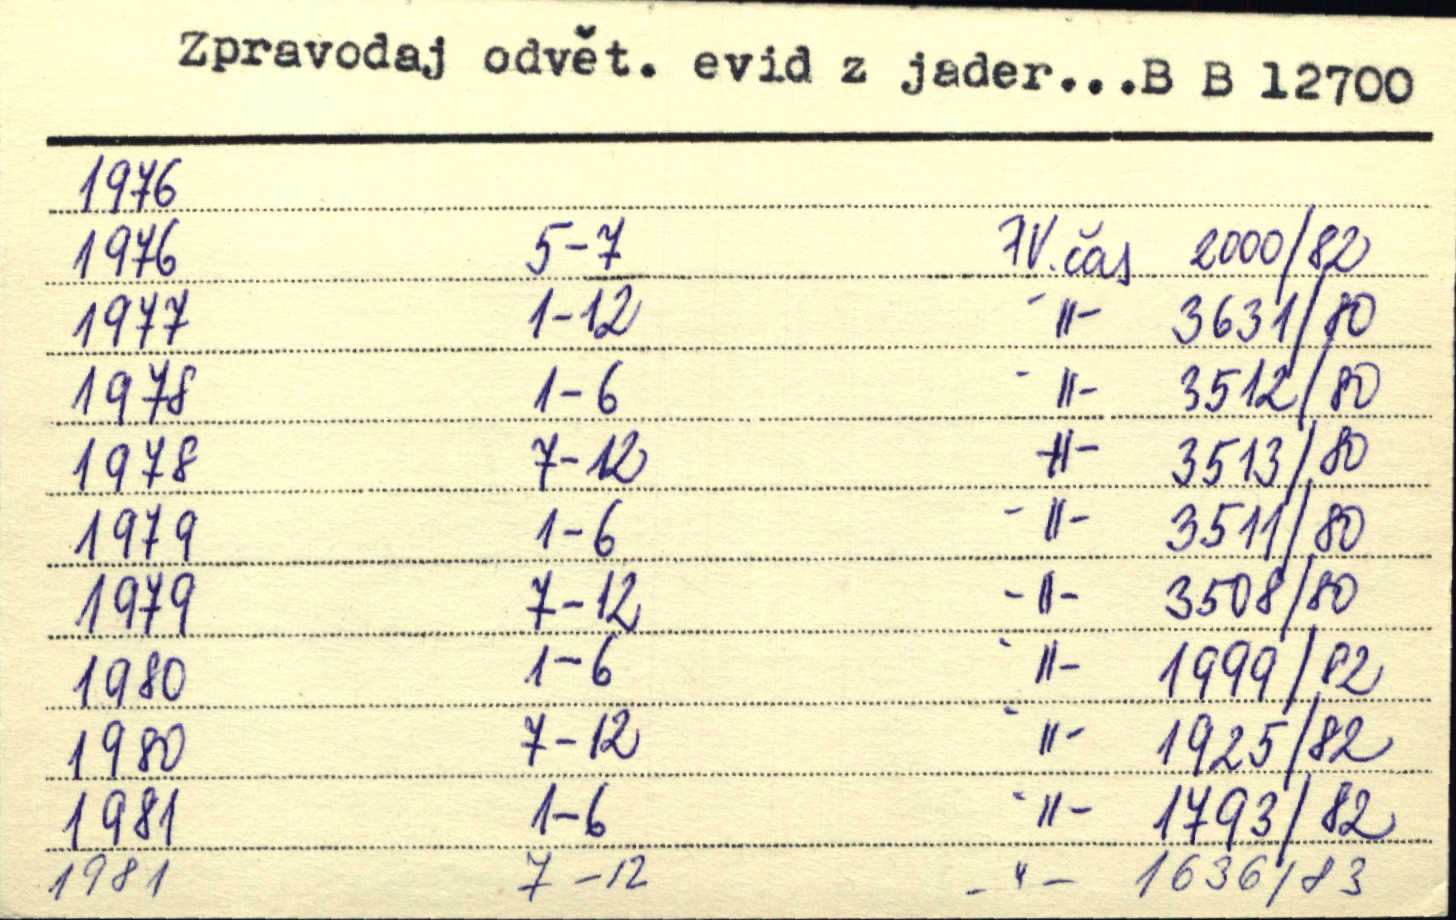 Zpravodaj odvět. evid z jader...B B 12700
1976
1976 5-7 IV. čas 2000/82
1977 1-12 -"- 3631/80
1978 1-6 -"- 3512/80
1978 7-12 -"- 3513/80
1979 1-6 -"- 3511/80
1979 7-12 -"- 3508/80
1980 1-6 -"- 1999/82
1980 7-12 -"- 1925/82
1981 1-6 -"- 1793/82
1981 7-12 -"- 1636/83